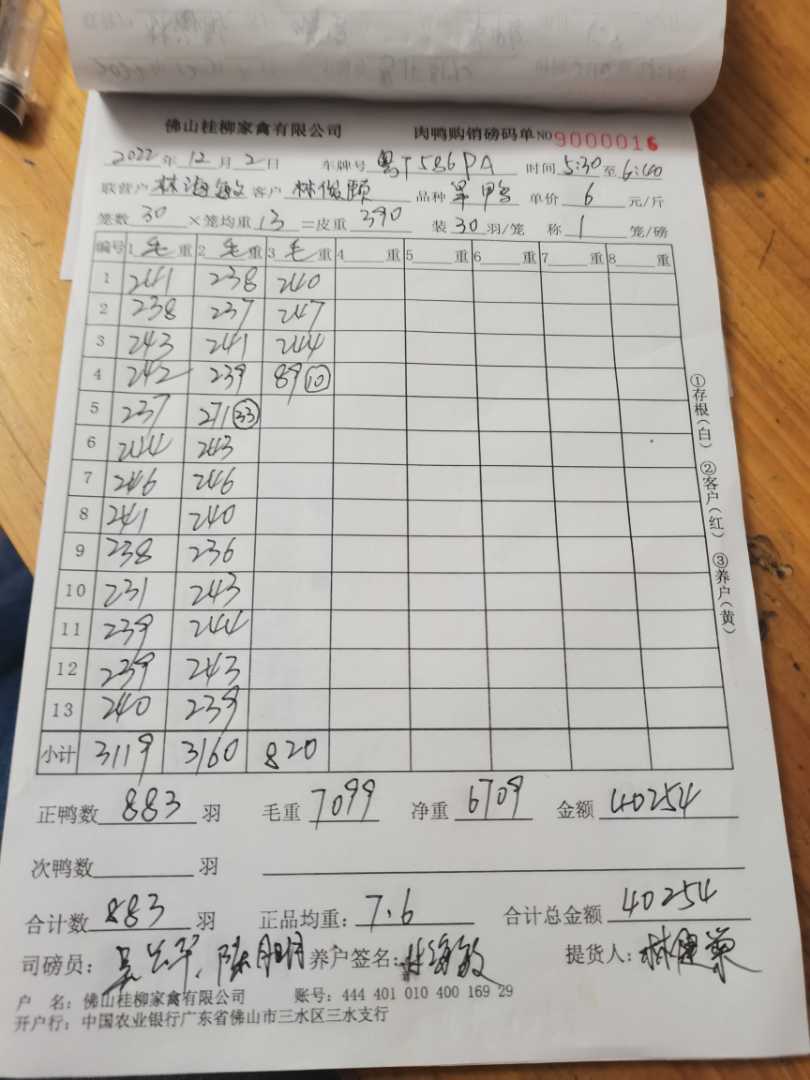 佛山桂柳家禽有限公司 肉鸭购销磅码单 NO 9000016
2022年12月2日 车牌号 粤T586PA 时间 5:30至6:40
联营户 林海敏 客户 林俊颐 品种 单价 6 元/斤
笼数 30 ×笼均重 13 =皮重 390 装 30 羽/笼 称 1 笼/磅
编号 1 毛 重 2 毛 重 3 毛 重 4 重 5 重 6 重 7 重 8 重
1 241 238 240
2 238 237 247
3 243 241 244
4 242 239 89 ⑩
5 237 271 ㉝
6 244 243
7 246 246
8 241 240
9 238 236
10 231 243
11 239 244
12 239 243
13 240 239
小计 3119 3160 820
①存根(白) ②客户(红) ③养户(黄)
正鸭数 883 羽 毛重 7099 净重 6709 金额 40254
次鸭数 羽
合计数 883 羽 正品均重: 7.6 合计总金额 40254
司磅员: 养户签名: 林海敏 提货人:
户 名: 佛山桂柳家禽有限公司 账号: 444 401 010 400 169 29
开户行: 中国农业银行广东省佛山市三水区三水支行